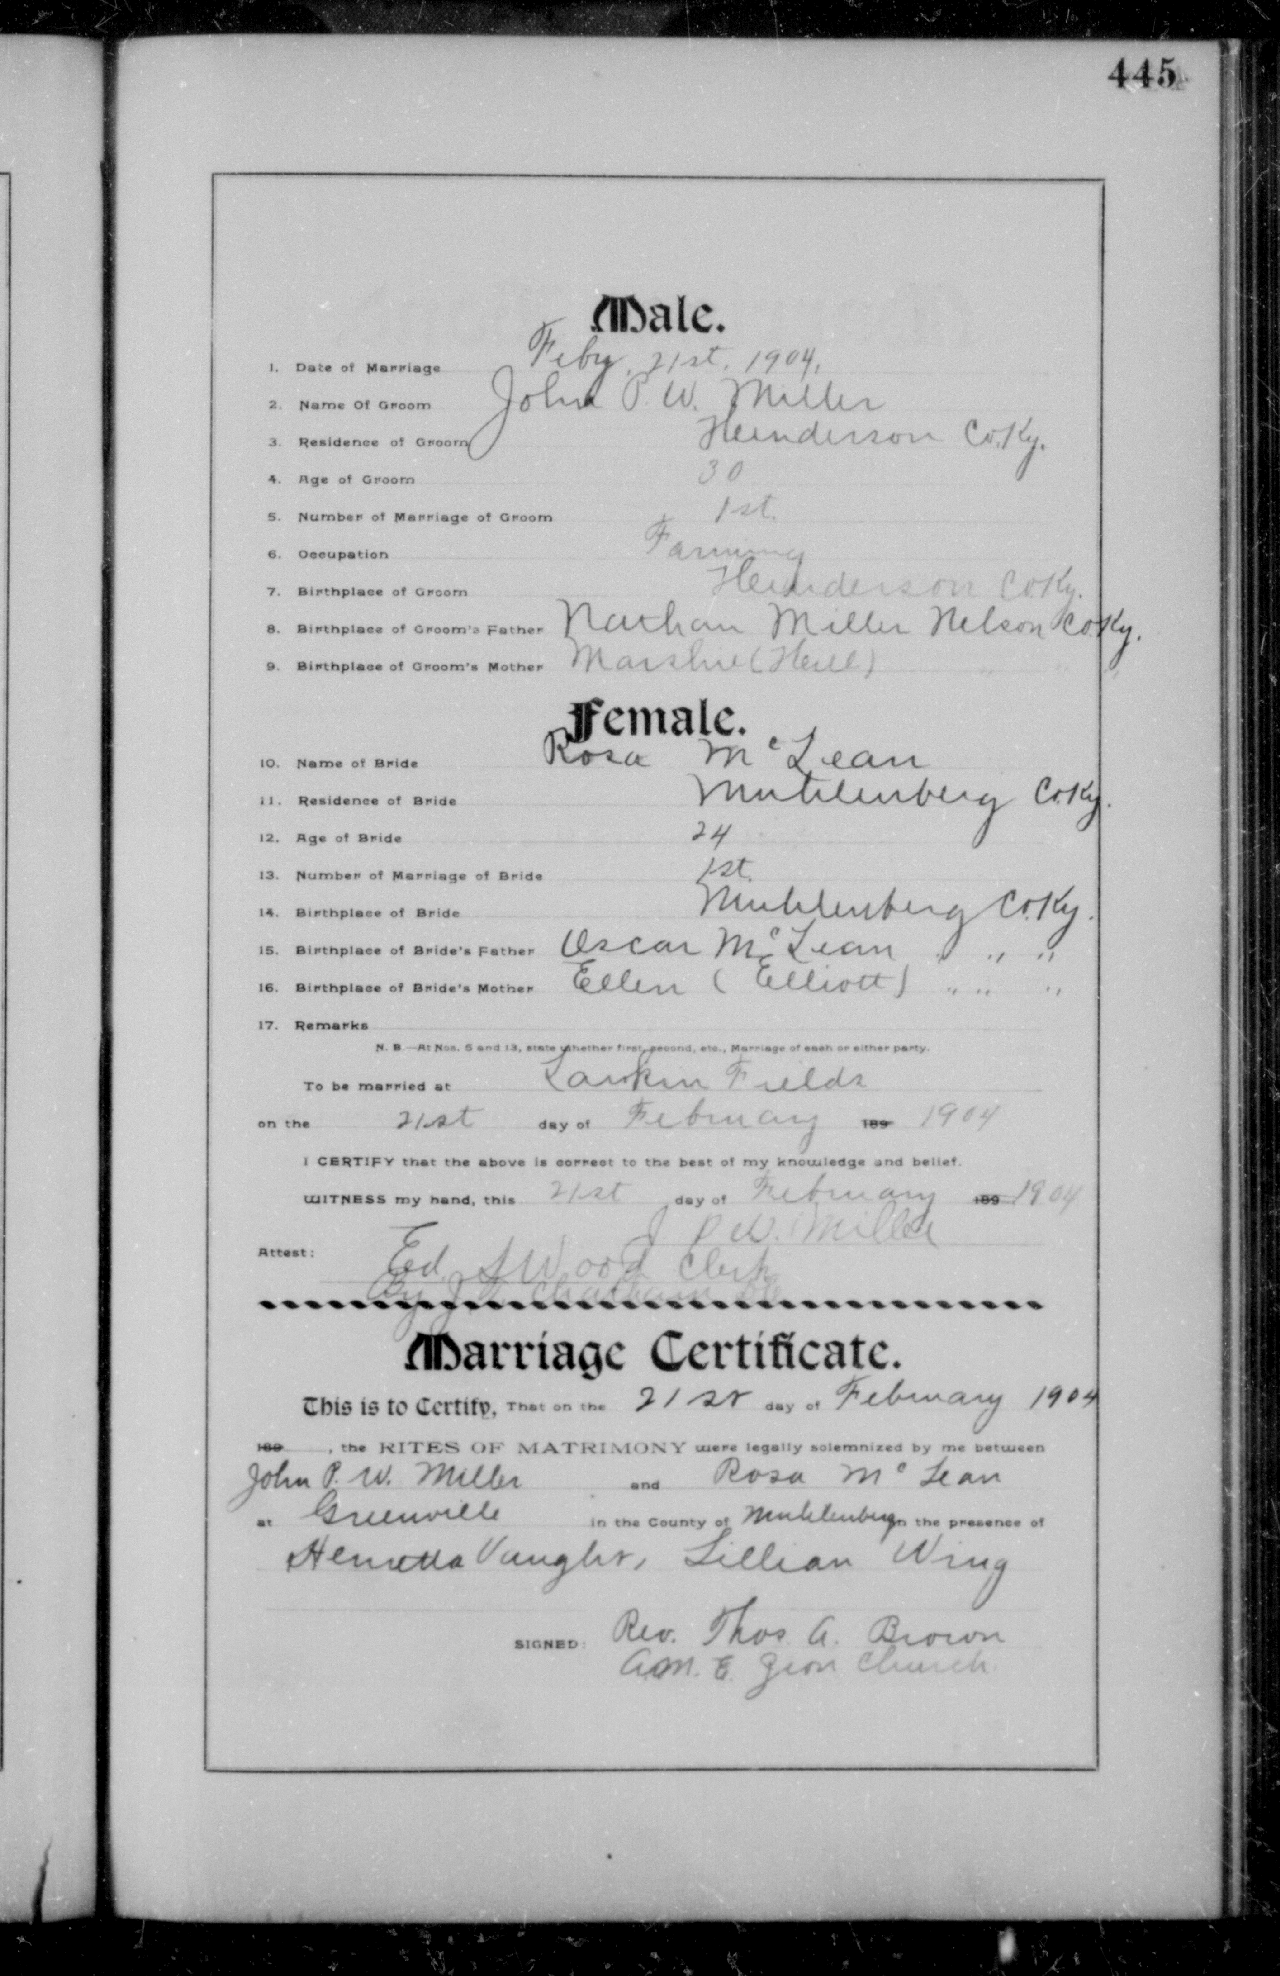 445
Male.
1. Date of Marriage Feby. 21st, 1904.
2. Name Of Groom John P. W. Miller
3. Residence of Groom Henderson Co. Ky.
4. Age of Groom 30
5. Number of Marriage of Groom 1st.
6. Occupation Farming
7. Birthplace of Groom Henderson Co Ky.
8. Birthplace of Groom's Father Nathan Miller Nelson Co. Ky.
9. Birthplace of Groom's Mother " "
Female.
10. Name of Bride Rosa McLean
11. Residence of Bride Muhlenberg Co. Ky.
12. Age of Bride 24
13. Number of Marriage of Bride 1st.
14. Birthplace of Bride Muhlenberg Co. Ky.
15. Birthplace of Bride's Father Oscar McLean " " "
16. Birthplace of Bride's Mother Ellen (Elliott) " " "
17. Remarks
N. B.—At Nos. 5 and 13, state whether first, second, etc., Marriage of each or either party.
To be married at Larkin Fields
on the 21st day of February 189 1904
I CERTIFY that the above is correct to the best of my knowledge and belief.
WITNESS my hand, this 21st day of February 189 1904
J P W. Miller
Attest: Ed. S Wood Clerk
By J. Chatham DC
Marriage Certificate.
This is to Certify, That on the 21st day of February 1904
189 , the RITES OF MATRIMONY were legally solemnized by me between
John P. W. Miller and Rosa McLean
at Greenville in the County of Muhlenberg in the presence of
Henrietta Vaught, Lillian Wing
SIGNED: Rev. Thos. A. Brown
A.M.E. Zion Church.